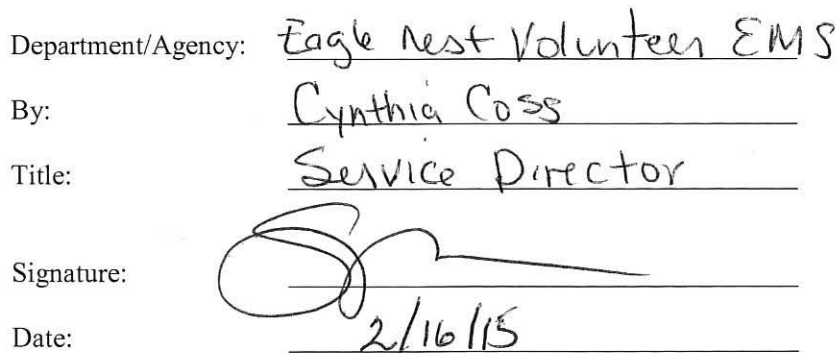 Department/Agency: Eagle Nest Volunteer EMS
By: Cynthia Coss
Title: Service Director
Signature:
Date: 2/16/15